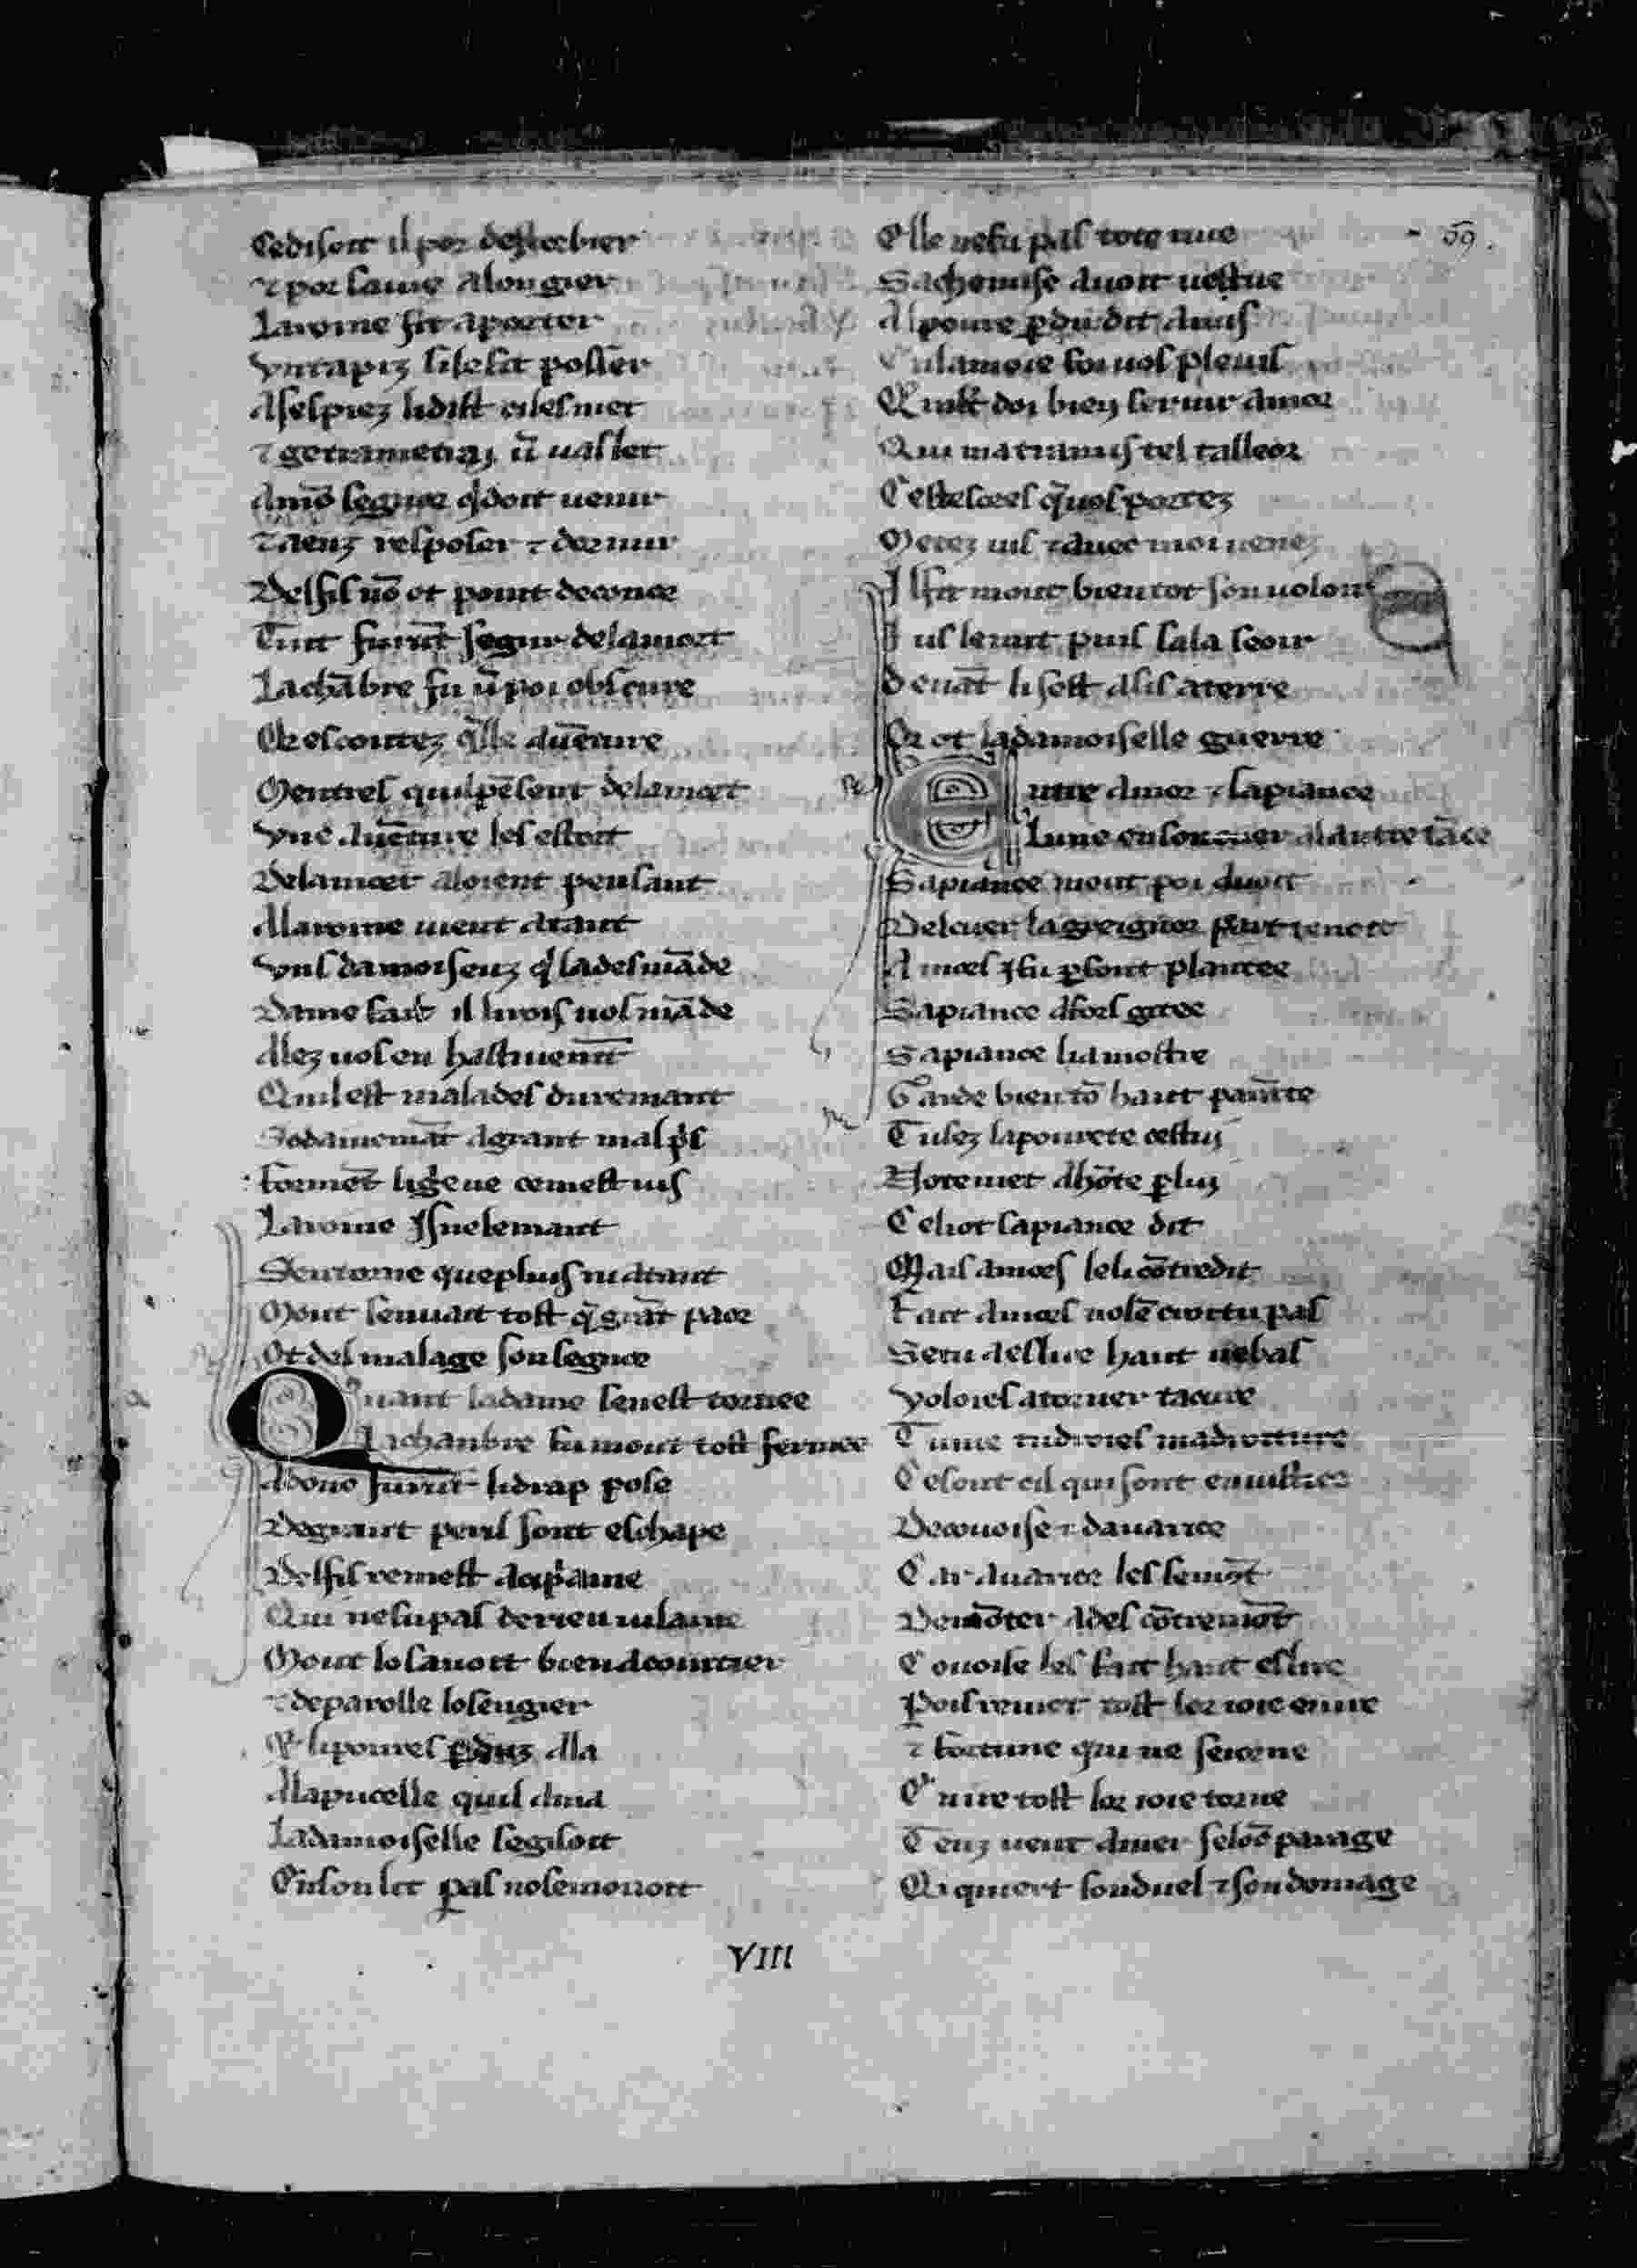 Cedisoit il por destorbier
⁊ por sauie alongier
Laroine fit aporter
Vn tapiz si le fit poser
A ses piez li dist
⁊ uaslet
A mō segnor q̄ doit uenir
⁊ aenz resposer ⁊ dormir
Del fil nō ot point deconce
Tuit furēt segur de la mort
La chābre fu ū poi obscure
Or escoutez q̄lle auēture
Mentres quil pēsent de lamort
Vne auēture les estoit
De la mort aloient pensant
A la roine uient atant
Vns damoiseuz q̄ la desmāde
Dame fait il li rois uos māde
Alez uos en hastiuemēt
Quil est malades duremant
Sodainemāt a grant mal pͥs
Formēt li greue ce mest uis
La roine isnelemant
Sen torne que plus ni atant
Mout sen uait tost q̄ grāt paor
Ot del malage son segnor
Quant la dame sen est tornee
La chanbre fu mout tost fermee
Adonc furēt li drap pose
De grant peril sont eschape
Del fil remest a
Qui ne fu pas de rien uilaine
Mout lo sauoit bien acointier
⁊ de parolle losengier
Et li poures perduz ala
A la pucelle quil ama
La damoiselle se gisoit
En son lit pas no se mouoit
Elle ne fu pas tote nue
Sa chemise auoit uestue
Al poure perdu dit amis
En la moie foi uos pleuis
Q mlt doi bien seruir amor
Qui ma tramis tel
Cestes ces q̄ uos portez
Metez ius ⁊ auec moi uenez
Il fit mout bien tot son uoloir
Jus les mit puis sala seoir
Deuāt li sest asis a terre
Or ot la damoiselle guerre
Entre amor ⁊ sapiance
Lune en son cuer a lautre tāce
Sapiance mout poi auoit
Del cuer la greignor part tenoit
Amors i fu parfont plantee
Sapiance a fors gitee
Sapiance li a mostre
Garde bien tō haut parāte
Tu sez la pourete cestui
Not emet a hōte par lui
Ce li ot sapiance dit
Mais amors le li cōtredit
Fait amors nolē croire tu pas
Se tu aesture haut ne bas
Voloies atorner ta cure
Tu me tudroies ma droiture
Ce sont cil qui sont
De couoise ⁊ dauarice
Car auarice les semōt
De mōter ades cōtremōt
Couoise les fait haut eslire
Pois reuiert tost lor ioie en ire
⁊ fortune qui ne seiorne
En ire tost lor ioie torne
Tenz ueut amer selōc parage
Qi quiert son duel ⁊ son domage
59.
VIII